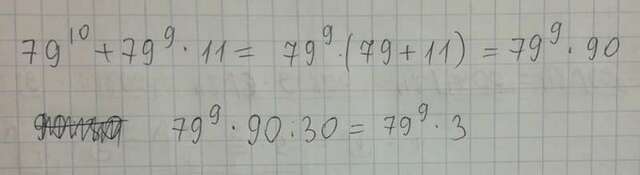 79¹⁰ + 79⁹ · 11 = 79⁹ · (79 + 11) = 79⁹ · 90
79⁹ · 90 : 30 = 79⁹ · 3